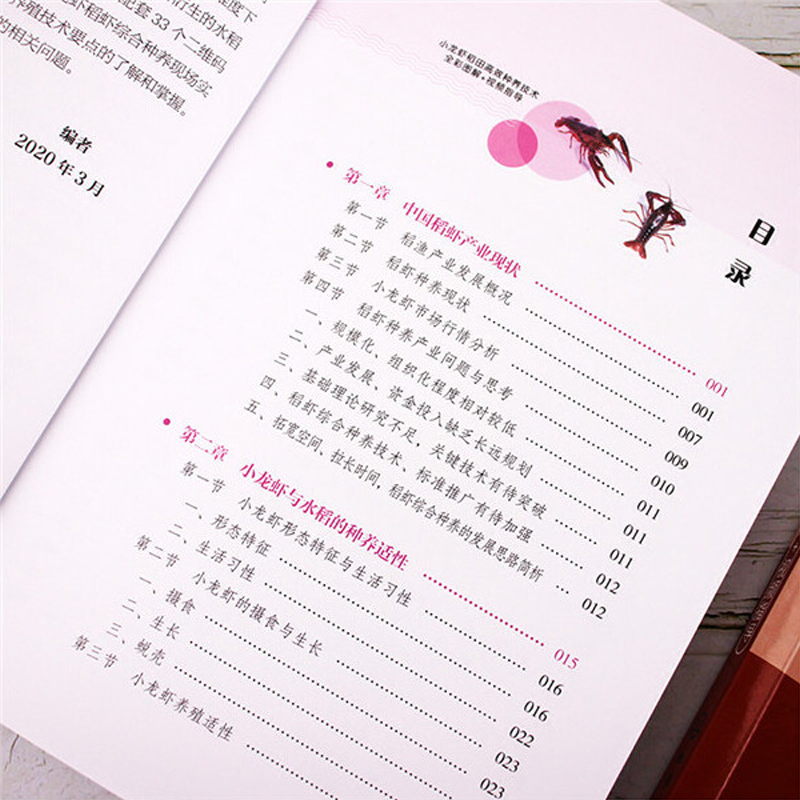 衍生的水稻
配套 33 个二维码
虾稻虾综合种养现场实
养殖技术要点的了解和掌握。
的相关问题。
编者
2020 年 3 月
小龙虾稻田高效种养技术
全彩图解+视频指导
目录
第一章 中国稻虾产业现状 001
第一节 稻渔产业发展概况 001
第二节 稻虾种养现状 007
第三节 小龙虾市场行情分析 009
第四节 稻虾种养产业问题与思考 010
一、规模化、组织化程度相对较低 011
二、产业发展、资金投入缺乏长远规划 011
三、基础理论研究不足、关键技术有待突破 011
四、稻虾综合种养技术、标准推广有待加强 012
五、拓宽空间、拉长时间，稻虾综合种养的发展思路简析 012
第二章 小龙虾与水稻的种养适性 015
第一节 小龙虾形态特征与生活习性 016
一、形态特征 016
二、生活习性 022
第二节 小龙虾的摄食与生长 023
一、摄食 023
二、生长
三、蜕壳
第三节 小龙虾养殖适性